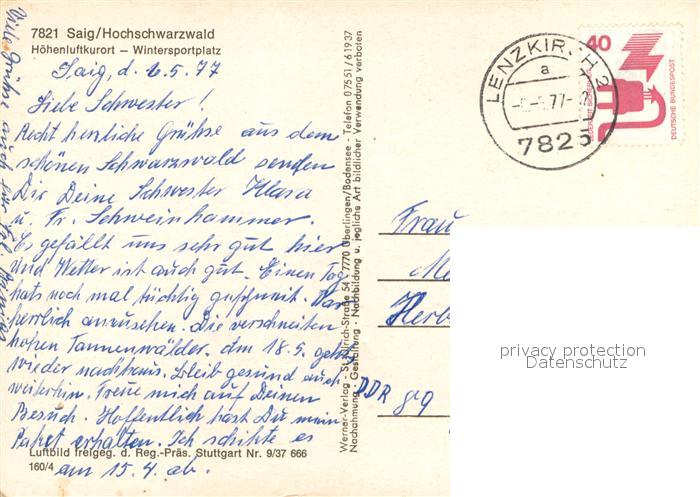 7821 Saig/Hochschwarzwald
Höhenluftkurort – Wintersportplatz
Saig, d. 2.5.77
Liebe Schwester!
Recht herzliche Grüße aus dem
schönen Schwarzwald senden
Dir Deine Schwester Klara
u. Fr. Schweinhammer.
Es gefällt uns sehr gut hier
und Wetter ist auch gut. Einen Tag
hats noch mal tüchtig geschneit. War
herrlich anzusehen. Die verschneiten
hohen Tannenwälder. Am 18.5. gehts
wieder nachhaus. Bleib gesund auch
weiterhin. Freue mich auf Deinen
Besuch. Hoffentlich hast Du mein
Paket erhalten. Ich schickte es
am 15.4. ab.
Viele Grüße auch für
Luftbild freigeg. d. Reg.-Präs. Stuttgart Nr. 9/37 666
160/4
Werner-Verlag - St.-Ulrich-Straße 54 - 7770 Überlingen/Bodensee - Telefon 07551/61937
Nachahmung - Gestaltung - Nachbildung u. jegliche Art bildlicher Verwendung verboten
LENZKIRCH 2
a
77
7825
40
DEUTSCHE BUNDESPOST
Frau
Me
Herb
DDR
privacy protection
Datenschutz